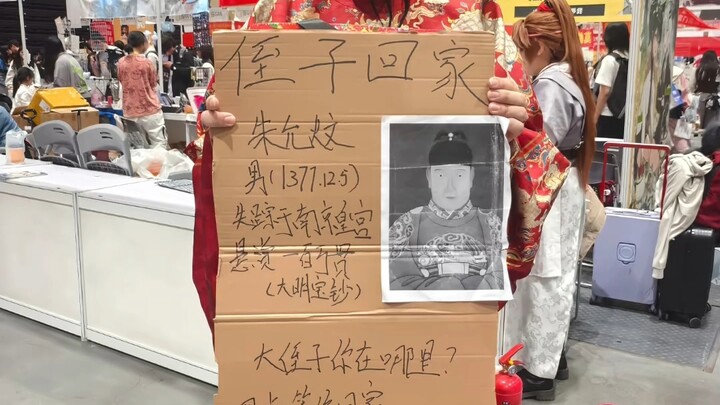 侄子回家
朱允炆
男(1377.12.5)
失踪于南京皇宫
悬赏一百万贯
(大明宝钞)
大侄子你在哪里?